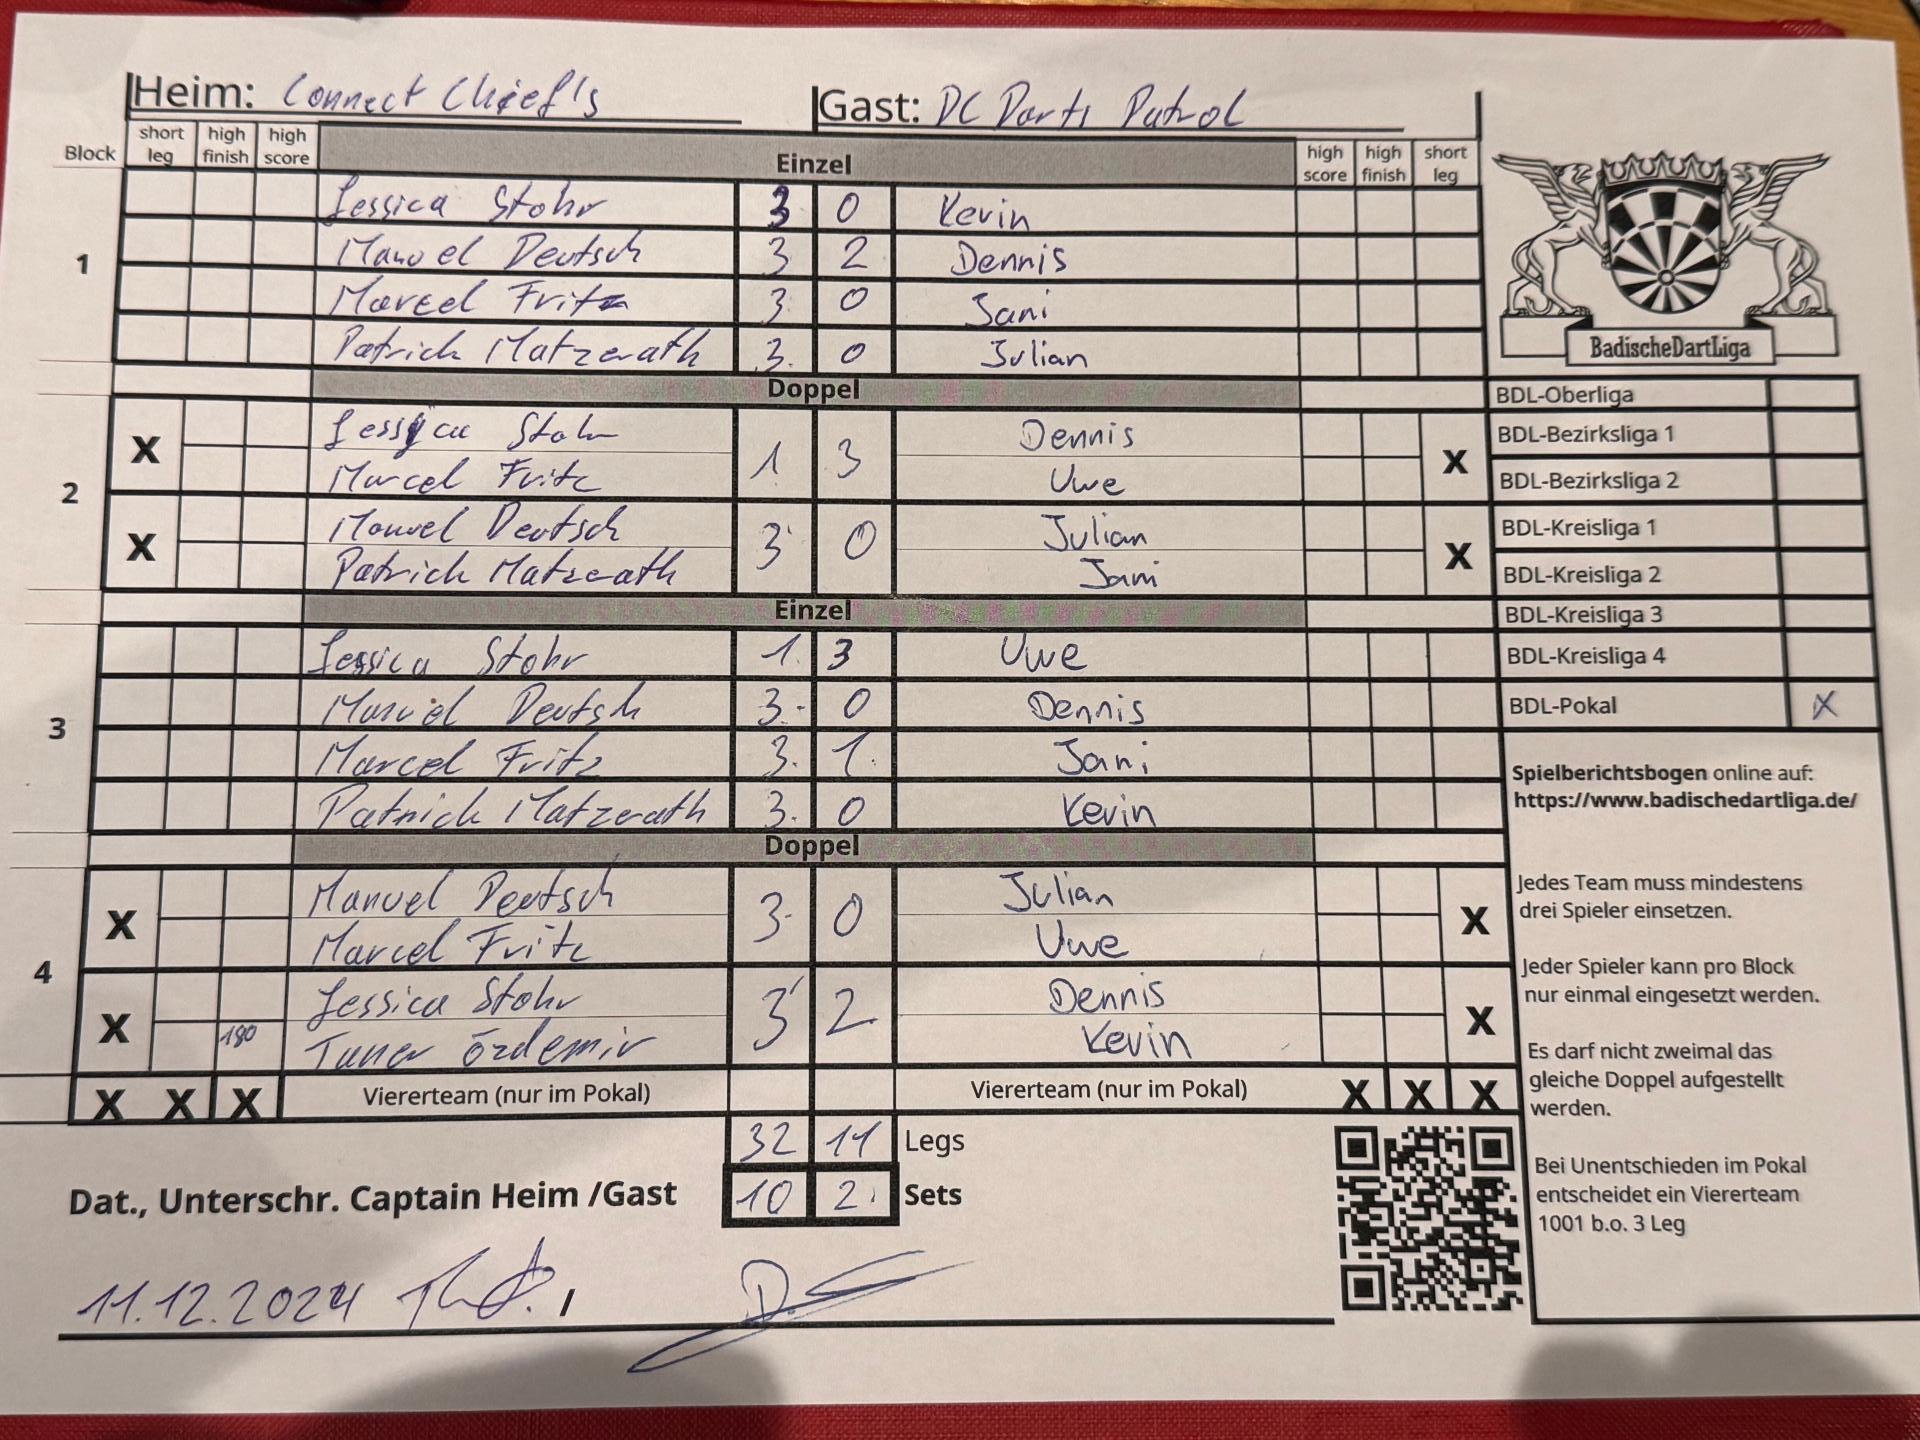 Heim: Connect Chief's Gast: DC Darts Patrol
Block short leg high finish high score Einzel high score high finish short leg
1
Jessica Stohr 3 0 Kevin
Manuel Deutsch 3 2 Dennis
Marcel Fritz 3 0 Jani
Patrick Matzerath 3 0 Julian
BadischeDartLiga
Doppel
2
X Jessica Stohr 1 3 Dennis X
Marcel Fritz Uwe
X Manuel Deutsch 3 0 Julian X
Patrick Matzerath Jani
Einzel
3
Jessica Stohr 1 3 Uwe
Manuel Deutsch 3 0 Dennis
Marcel Fritz 3 1 Jani
Patrick Matzerath 3 0 Kevin
Doppel
4
X Manuel Deutsch 3 0 Julian X
Marcel Fritz Uwe
X Jessica Stohr 3 2 Dennis X
180 Tuner Özdemir Kevin
X X X Vierterteam (nur im Pokal) Viererteam (nur im Pokal) X X X
32 11 Legs
Dat., Unterschr. Captain Heim /Gast 10 2 Sets
11.12.2024
BDL-Oberliga
BDL-Bezirksliga 1
BDL-Bezirksliga 2
BDL-Kreisliga 1
BDL-Kreisliga 2
BDL-Kreisliga 3
BDL-Kreisliga 4
BDL-Pokal X
Spielberichtsbogen online auf:
https://www.badischedartliga.de/
Jedes Team muss mindestens
drei Spieler einsetzen.
Jeder Spieler kann pro Block
nur einmal eingesetzt werden.
Es darf nicht zweimal das
gleiche Doppel aufgestellt
werden.
Bei Unentschieden im Pokal
entscheidet ein Viererteam
1001 b.o. 3 Leg